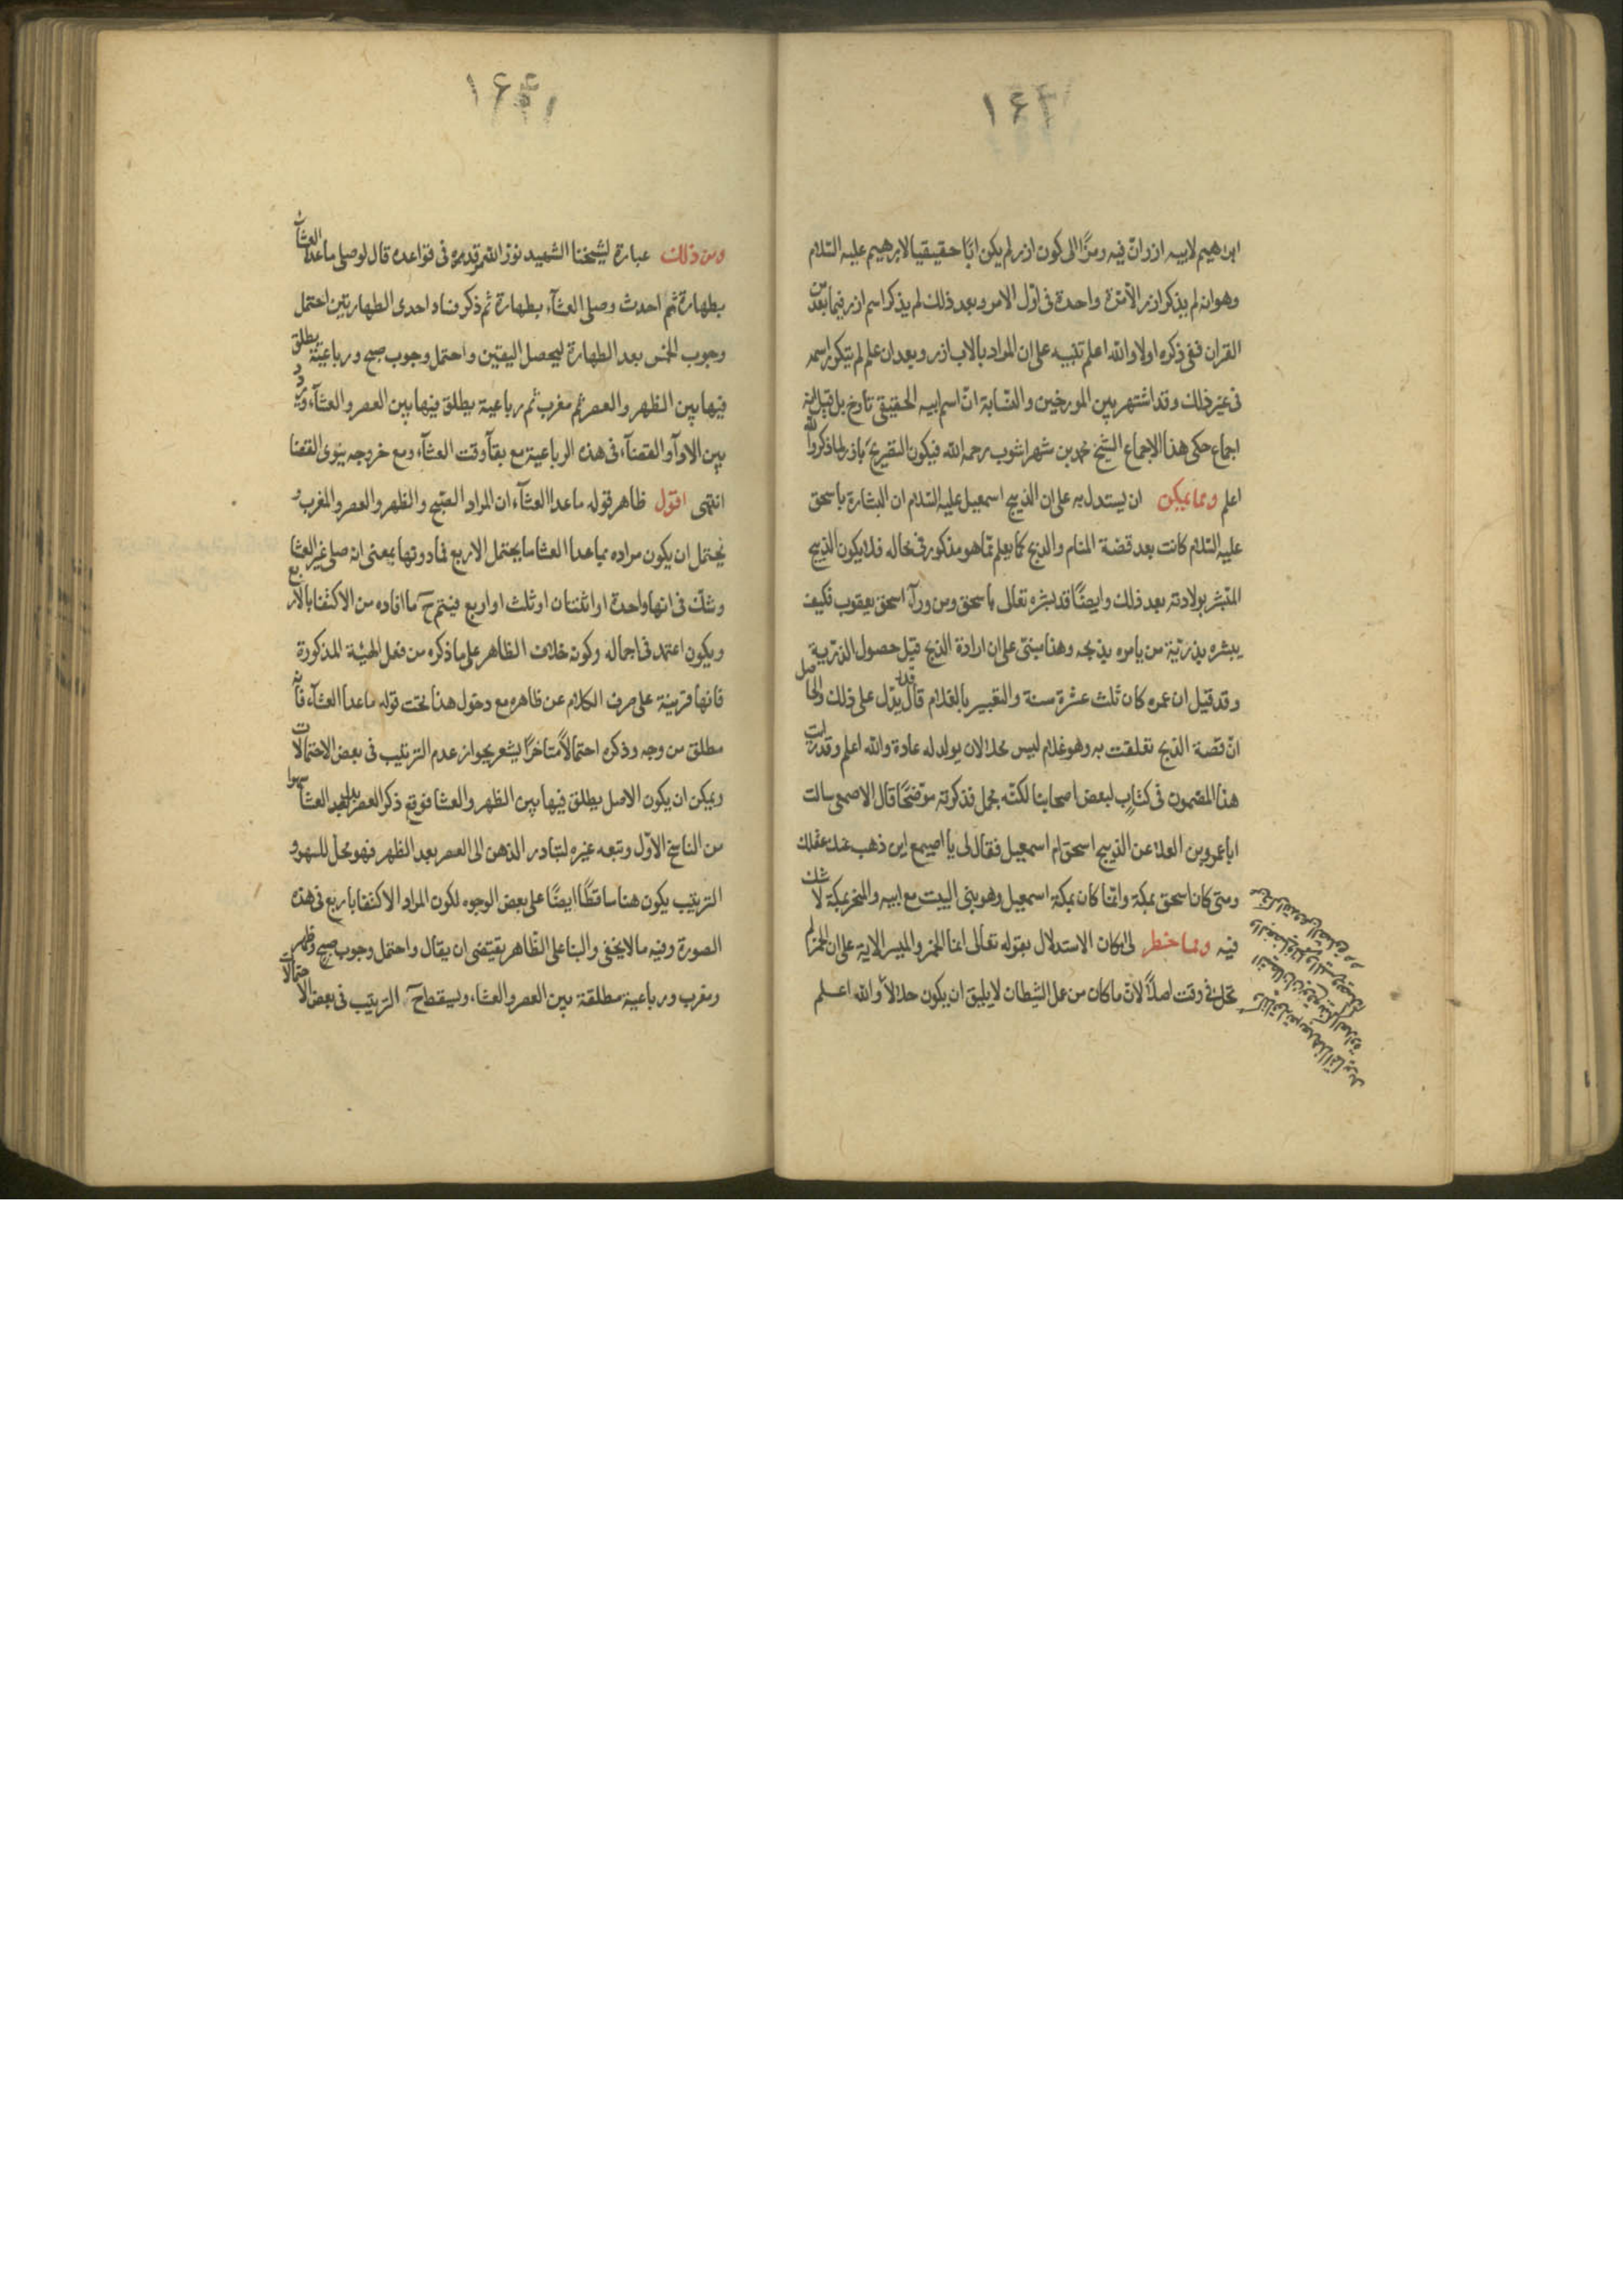 ابرهيم لابيه ازر انّ فيه رمزًا الى كون ازر لم يكن ابًا حقيقيا لابرهيم عليه السّلام
وهو انه لم يذكر ازر الّا مرّة واحدة فى اوّل الامر وبعد ذلك لم يذكر اسم ازر فيما بعد من
القران ففى ذكره اولا والله اعلم تنبيه على ان المراد بالاب ازر وبعد ان علم لم يتكرر اسمه
فى غير ذلك وقد اشتهر بين المورخين والنسّابة انّ اسم ابيه الحقيقى تارخ بل قيل انه
اجماع حكى هذا الاجماع الشيخ محمد بن شهراشوب رحمه الله فيكون التقريح بازر لما ذكر والله
اعلم ومما يمكن ان يستدل به على ان الذبيح اسمعيل عليه السّلام ان البشارة باسحق
عليه السّلام كانت بعد قصة المنام والذبح كما يعلم ممّا هو مذكور فى محاله فلا يكون الذبيح
المتبشر بولادته بعد ذلك وايضًا قد بشره تعالى باسحق ومن ورآء اسحق يعقوب فكيف
يبشره بذريّة من يامره بذبحه وهذا مبنى على ان ارادة الذبح قبل حصول الذريّة
وقد قيل ان عمره كان ثلث عشرة سنة والتعبير بالغلام قد يدل على ذلك والحاصل
انّ قصة الذبح تعلقت به وهو غلام ليس محلا لان يولد له عادة والله اعلم وقد رايت
هذا المضمون فى كتابٍ لبعض اصحابنا لكنّه مجمل فذكرته موضحًا قال الاصمعى سالت
ابا عمرو بن العلا عن الذبيح اسحق ام اسمعيل فقال لى يا اصيمع اين ذهب عنك عقلك
ومتى كان اسحق بمكة وانما كان بمكة اسمعيل وهو بنى البيت مع ابيه والمنحر بمكة لا شك
فيه ومما خطر لى امكان الاستدلال بقوله تعالى انما الخمر والميسر الاية على ان الخمر لم
تحل فى وقت اصلاً لانّ ما كان من عمل الشيطان لا يليق ان يكون حلالاً والله اعلم
ومن ذلك عبارة لشيخنا الشهيد نوّر الله مرقده فى قواعده قال لو صلى ما عدا العشآء
بطهارة ثم احدث وصلى العشآء بطهارة ثم ذكر فساد احدى الطهارتين احتمل
وجوب الخمس بعد الطهارة ليحصل اليقين واحتمل وجوب صبح ورباعيّة يطلق
فيها بين الظهر والعصر ثم مغرب ثم رباعية يطلق فيها بين العصر والعشآء ويردد
بين الادآ والقضآء فى هذه الرباعية مع بقآ وقت العشآء ومع خروجه ينوى القضا
انتهى اقول ظاهر قوله ما عدا العشآء ان المراد الصبح والظهر والعصر والمغرب و
يحتمل ان يكون مراده بما عدا العشا ما يحتمل الاربع فما دونها بمعنى انه صلى غير العشا
وشك فى انها واحدة او اثنتان او ثلث او اربع فيتم ح ما افاده من الاكتفا بالاربع
ويكون اعتمد فى اجماله وكونه خلاف الظاهر على ما ذكره من فعل الهيئة المذكورة
فانها قرينة على صرف الكلام عن ظاهره مع دخول هذا تحت قوله ما عدا العشآء فانه
مطلق من وجه وذكره احتمالاً متاخرًا يشعر بجواز عدم الترتيب فى بعض الاحتمالات
ويمكن ان يكون الاصل يطلق فيها بين الظهر والعشا فوقع ذكر العصر بدل العشا سهوا
من الناسخ الاوّل وتبعه غيره لتبادر الذهن الى العصر بعد الظهر فهو محل للسهو و
الترتيب يكون هنا ساقطًا ايضًا على بعض الوجوه لكون المراد الاكتفا باربع فى هذه
الصورة وفيه ما لا يخفى والبنا على الظاهر يقتضى ان يقال واحتمل وجوب صبح وظهر
ومغرب ورباعية مطلقة بين العصر والعشا، ويسقط ح الترتيب فى بعض الاحتمالات